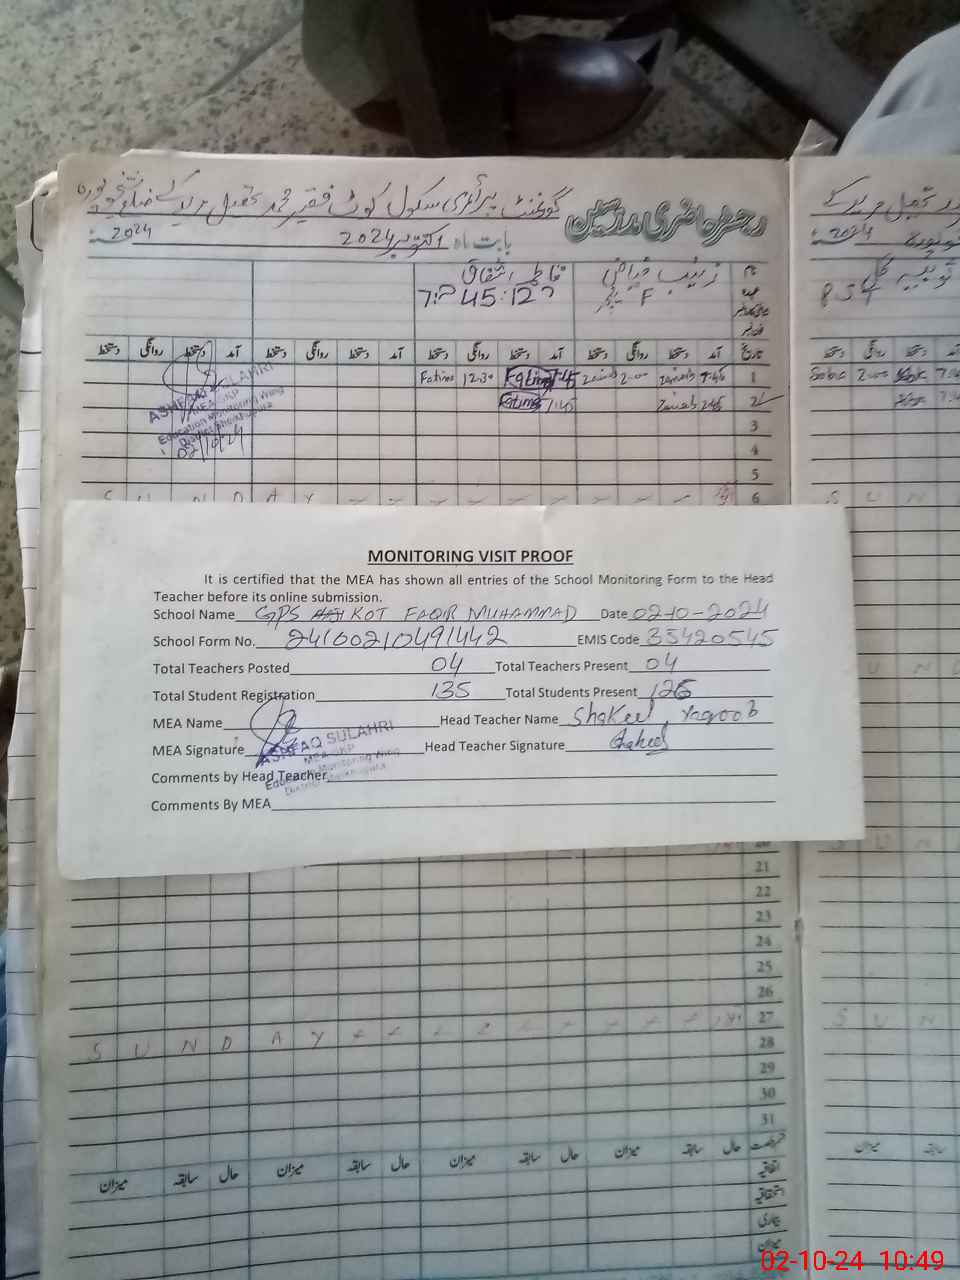 گورنمنٹ پرائمری سکول کوٹ فقیر محمد تحصیل مریدکے ضلع شیخوپورہ
رجسٹر حاضری مدرسین
بابت ماہ اکتوبر 2024
2024
نام
زینب
فاطمہ اشفاق
تاریخ آمد دستخط روانگی دستخط آمد دستخط روانگی دستخط آمد دستخط روانگی دستخط آمد دستخط روانگی دستخط
1 7:45 Zainab 2:00 Zainab 7:45 Fatima 12:30 Fatima
2 7:45 Zainab 7:45 Fatima
3
4
5
6 S U N D A Y
ASHFAQ SULAHRI
MEA SKP
Education Monitoring Wing
District Sheikhupura
02/10/24
MONITORING VISIT PROOF
It is certified that the MEA has shown all entries of the School Monitoring Form to the Head
Teacher before its online submission.
School Name GPS KOT FAQIR MUHAMMAD Date 02-10-2024
School Form No. 24100210491442 EMIS Code 35420545
Total Teachers Posted 04 Total Teachers Present 04
Total Student Registration 135 Total Students Present 126
MEA Name Head Teacher Name Shakeel Yaqoob
MEA Signature Head Teacher Signature Shakeel
ASHFAQ SULAHRI
MEA SKP
Education Monitoring Wing
District Sheikhupura
Comments by Head Teacher
Comments By MEA
20
21
22
23
24
25
26
27 S U N D A Y
28
29
30
31
حال سابقہ میزان حال سابقہ میزان حال سابقہ میزان
اتفاقیہ
استحقاقیہ
بیماری
میزان
2024
S U N
S U N
S U N
S U N
میزان سابقہ
02-10-24 10:49